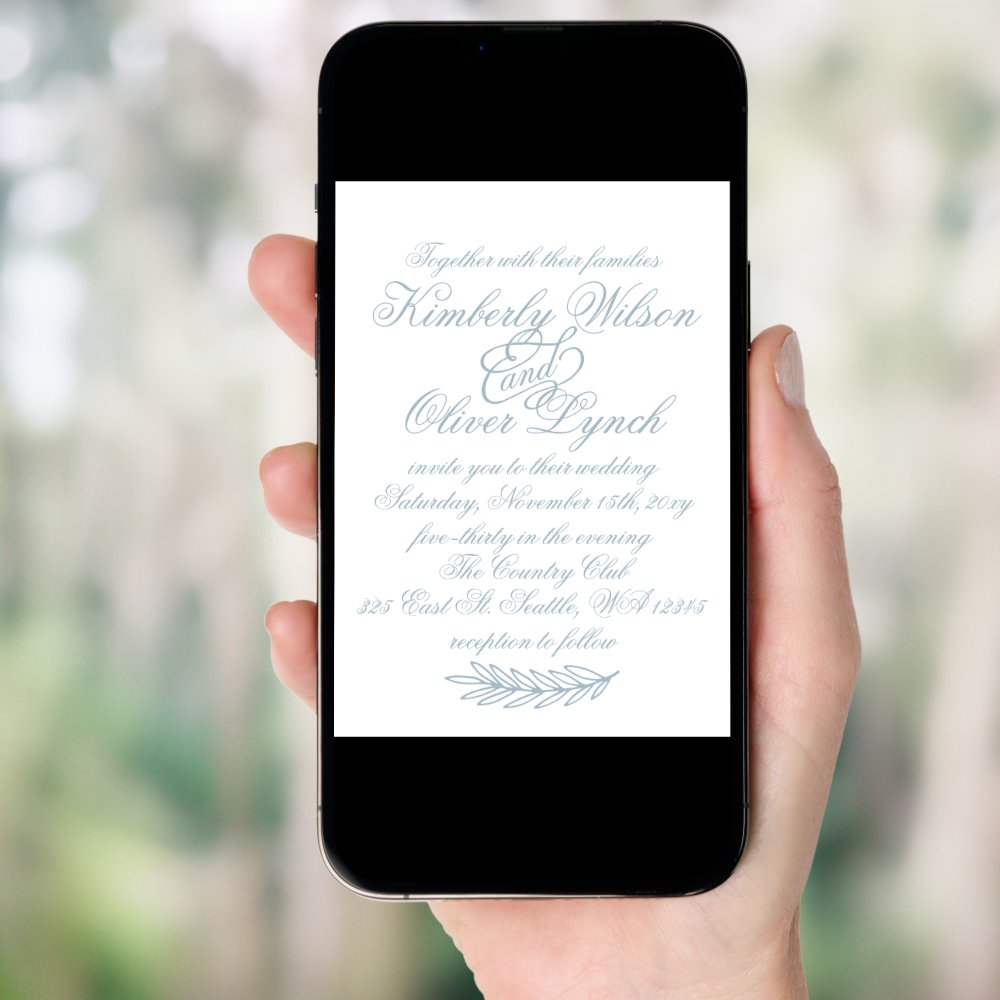 Together with their families
Kimberly Wilson
and
Oliver Lynch
invite you to their wedding
Saturday, November 15th, 20xy
five-thirty in the evening
The Country Club
325 East St. Seattle, WA 12345
reception to follow